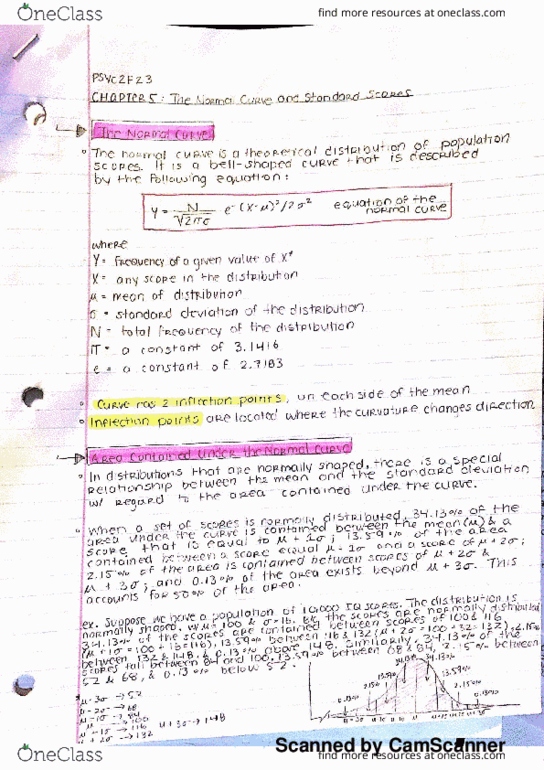 OneClass
find more resources at oneclass.com
PSYC2F23
CHAPTER 5: The Normal Curve and Standard Scores
The Normal Curve
The normal curve is a theoretical distribution of population
scores. It is a bell-shaped curve that is described
by the following equation:
Y = N/√2πσ e-(X-μ)²/2σ² equation of the
normal curve
where
Y= frequency of a given value of X
X= any score in the distribution
μ= mean of distribution
σ= standard deviation of the distribution
N= total frequency of the distribution
π= a constant of 3.1416
e= a constant of 2.7183
Curve has 2 inflection points, on each side of the mean
Inflection points are located where the curvature changes direction
Area Contained Under the Normal Curve
In distributions that are normally shaped, there is a special
relationship between the mean and the standard deviation
w/ regard to the area contained under the curve.
When a set of scores is normally distributed, 34.13% of the
area under the curve is contained between the mean (μ) & a
score that is equal to μ + ; 13.59% of the area
contained between a score equal and a score of μ + 2σ;
2.15% of the area is contained between scores of μ + 2σ &
μ + 3σ; and 0.13% of the area exists beyond μ + 3σ. This
accounts for 50% of the area.
ex. Suppose we have a population of IQ scores. The distribution is
normally shaped, w/ μ = 100 & σ = 16. the scores are normally distributed
34.13% of the scores are contained between scores of 100 & 116
(μ + 1σ = 100 + 16 = 116), 13.59% between 116 & 132 (μ + 2σ = 100 + 32 = 132), 2.15%
between 132 & 148, & 0.13% above 148. Similarly, 34.13% of the
scores fall between 84 and 100, 13.59% between 68 & 84, 2.15% between
52 & 68, & 0.13% below 52.
34.13%
13.59%
2.15%
0.13%
μ - 3σ → 52
μ - 2σ → 68
μ - 1σ → 84
μ → 100
μ + 1σ → 116 μ + 3σ → 148
μ + 2σ → 132
Scanned by CamScanner
OneClass
find more resources at oneclass.com